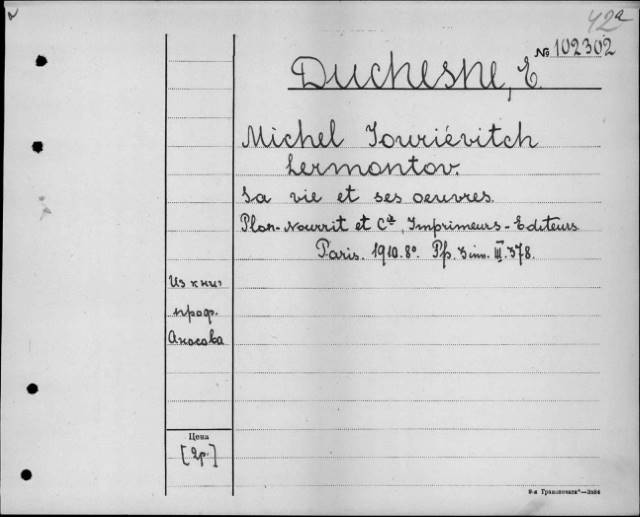 42а
№ 102302
Duchesne, E.
Michel Iouriévitch
Lermontov.
Sa vie et ses oeuvres.
Plon-Nourrit et Cie, Imprimeurs-Editeurs
Paris. 1910. 8º. Pp. III. 378.
Из книг
проф.
Аносова
Цена
[2р.]